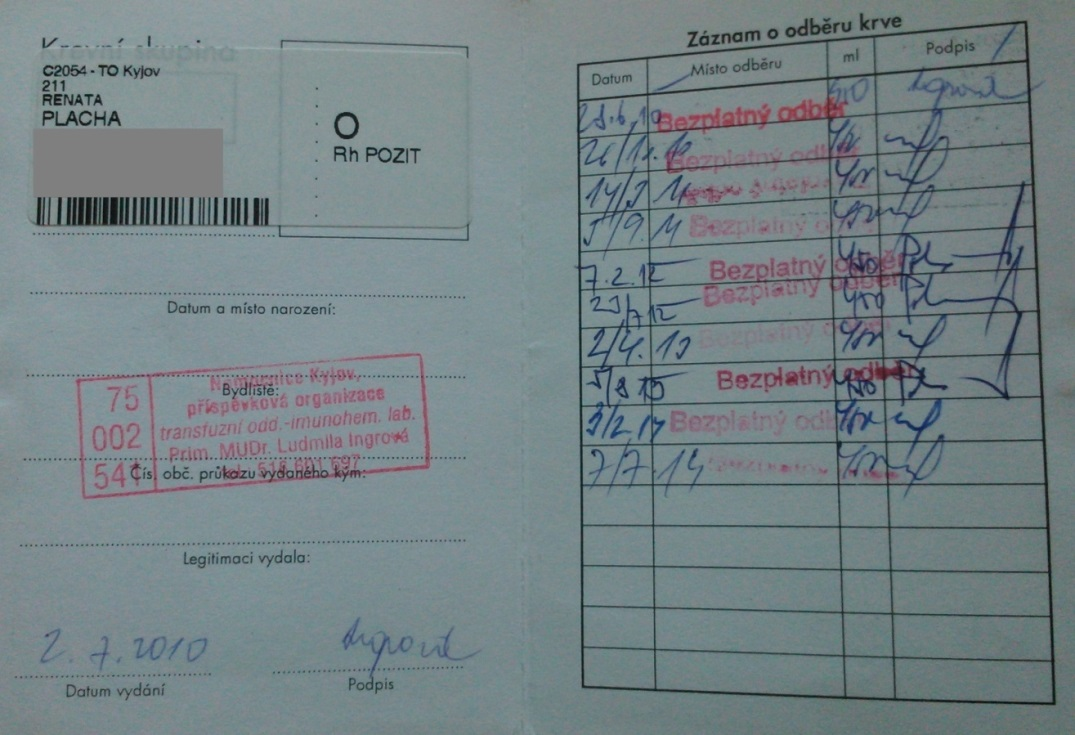 Krevní skupina
C2054 - TO Kyjov
211
RENATA
PLACHA
O
Rh POZIT
Datum a místo narození:
Bydliště:
75
002
541
Nemocnice Kyjov,
příspěvková organizace
transfuzní odd.-imunohem. lab.
Prim. MUDr. Ludmila Ingrová
Čís. obč. průkazu vydaného kým:
Legitimaci vydala:
2. 7. 2010
Datum vydání
Podpis
Záznam o odběru krve
Datum Místo odběru ml Podpis
Bezplatný odběr
Bezplatný odběr
14/3 11 450
5/9. 11 Bezplatný odběr 450
7.2.12 Bezplatný odběr 450
23/7 12 Bezplatný odběr 450
2/4. 13 Bezplatný odběr 450
5/8 13 Bezplatný odběr 450
3/2. 14 Bezplatný odběr 450
7/7. 14 450